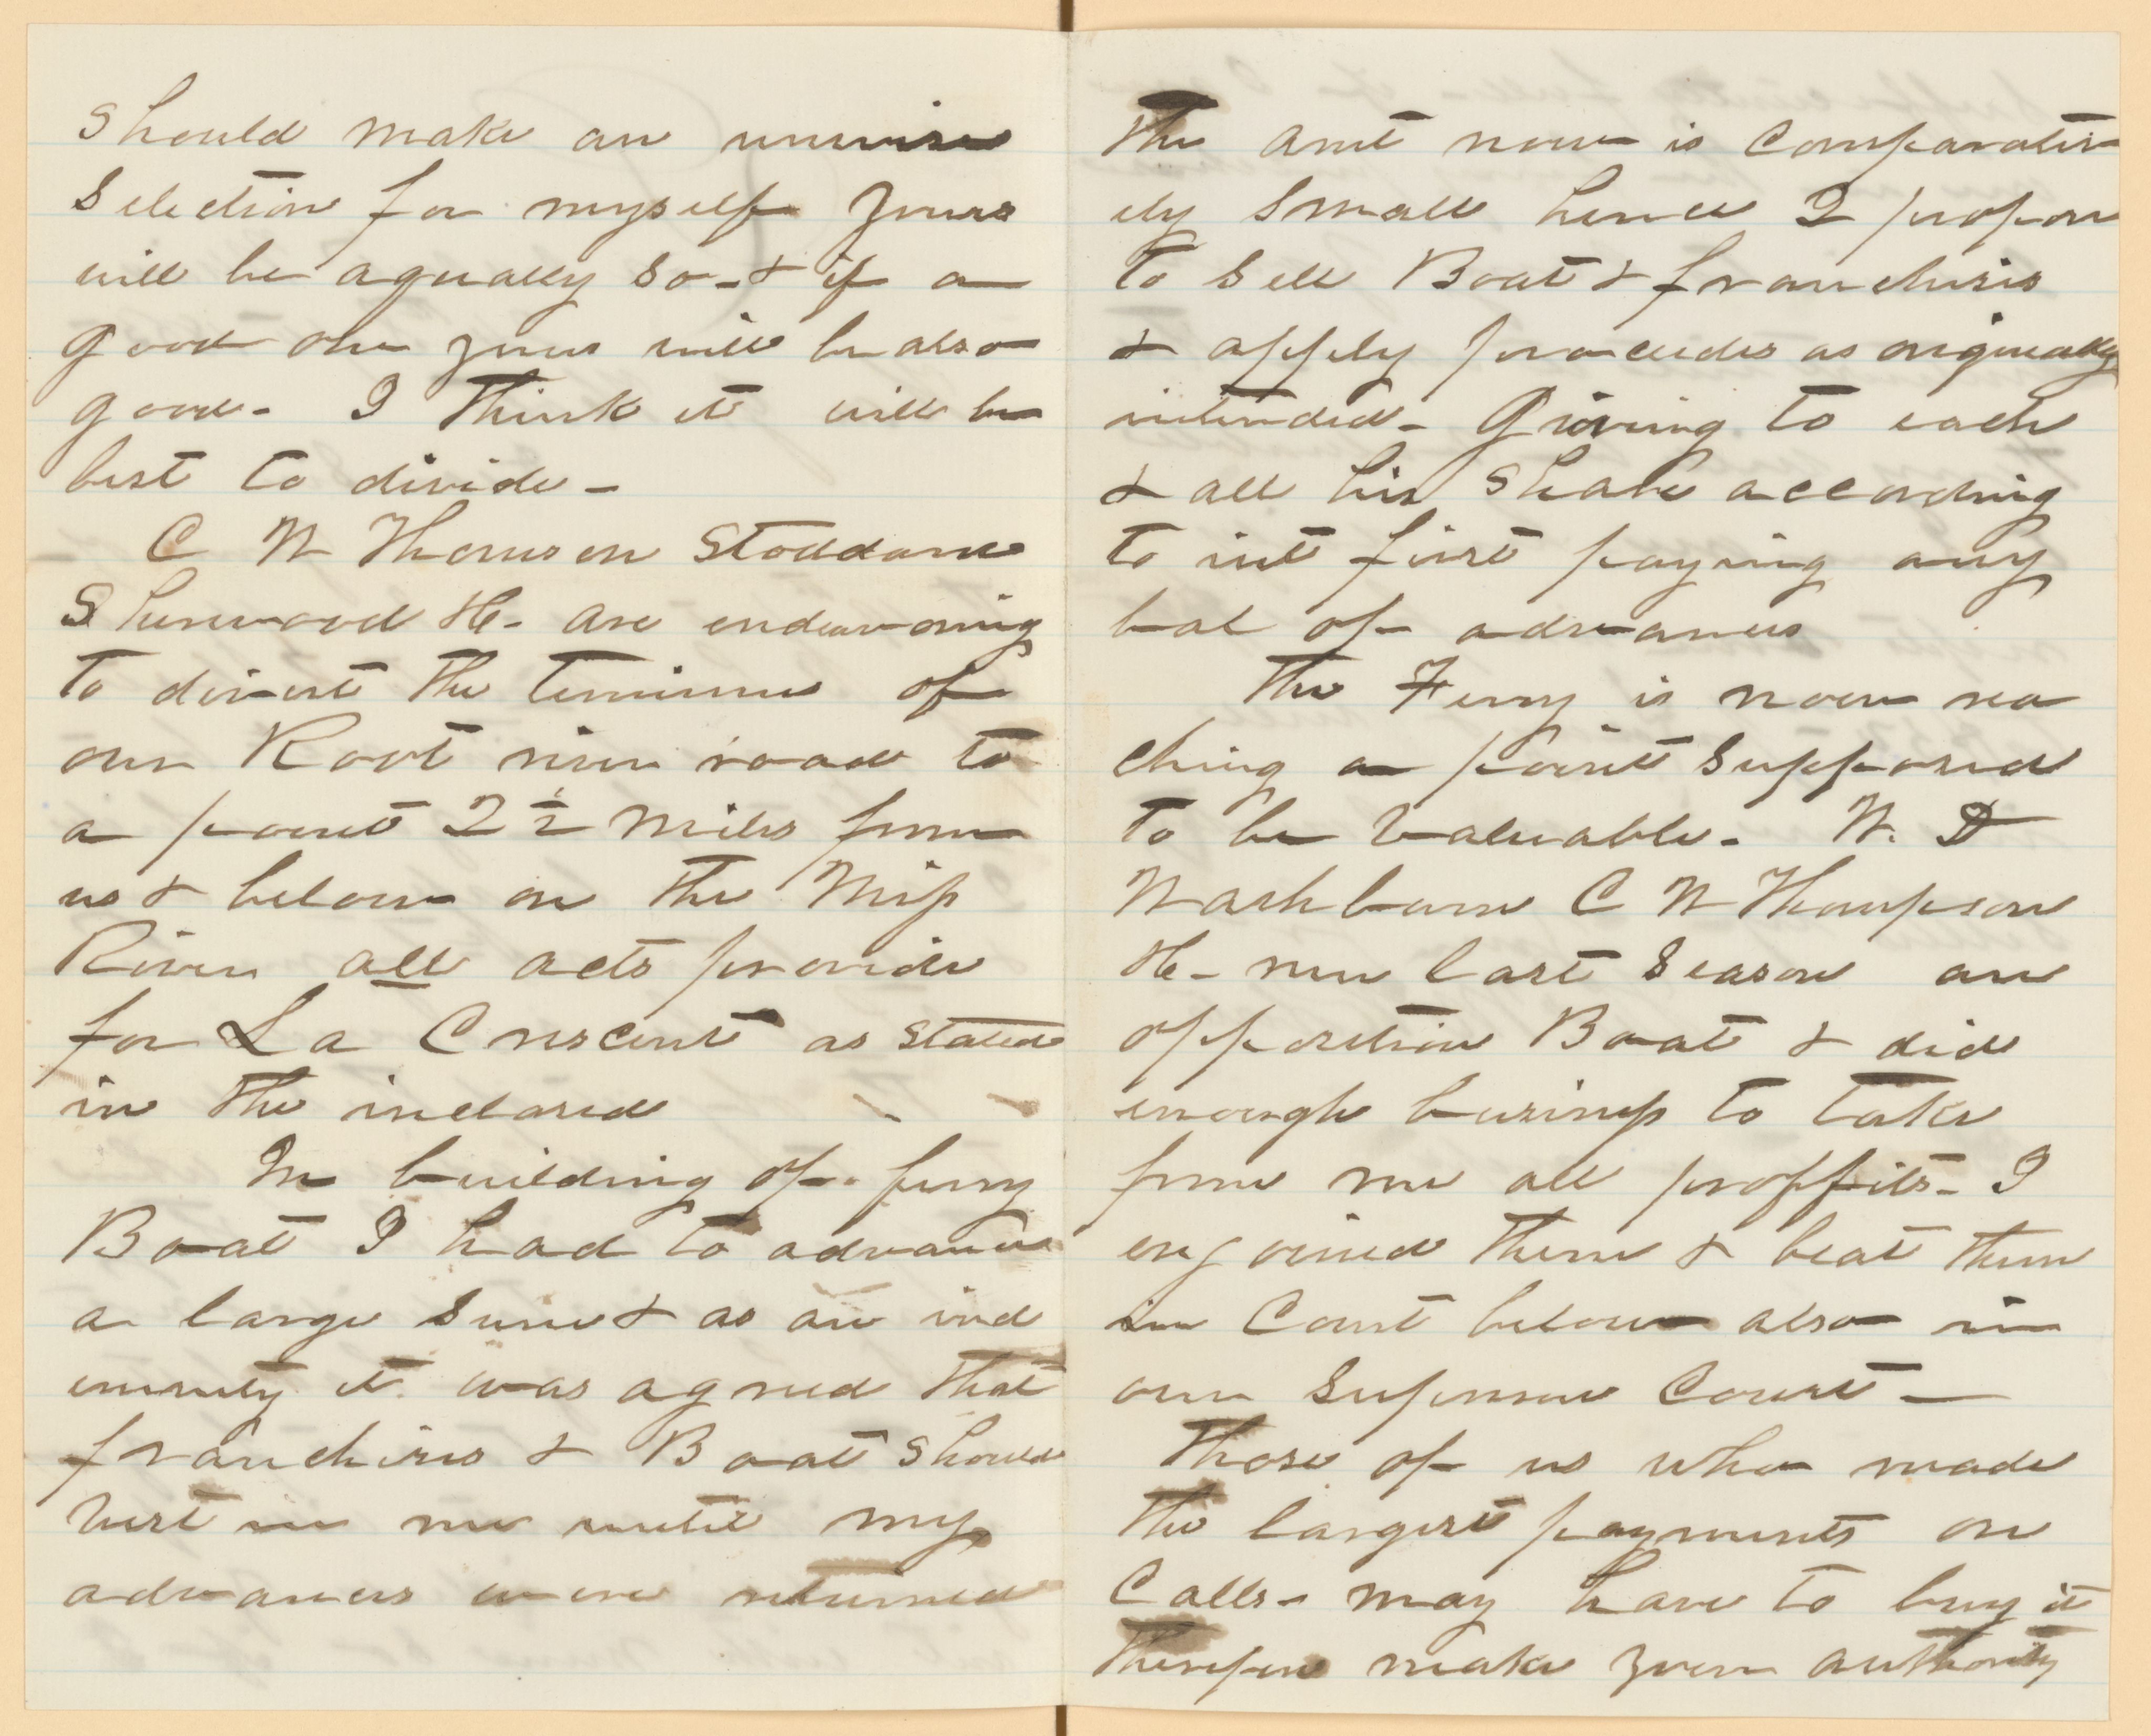 should make an unwise
selection for myself yours
will be aqually so - & if a
good one yours will be also
good - I think it will be
best to divide -
C W Thomson Stoddard
Sherwood &c - are endeavoring
to divert the terminus of
our Root river road to
a point 2½ miles from
us & below on the Miss
River all acts provide
for La Crescent as stated
in the inclosed
In building of ferry
Boat I had to advance
a large sum & as an ind
emnity it was agreed that
franchises & Boat should
vest in me until my
advances were returned
The amt now is comparativ
ely small hence I propose
to sell Boat & franchises
& apply proceedes as originally
intended - Giving to each
& all his share according
to int first paying any
bal of advances
The Ferry is now rea
ching a point supposed
to be valuable - W. D
Washburn C W Thompson
&c - run last season an
opposition Boat & did
enough business to take
from me all proffits - I
enjoined them & beat them
in Court below also in
our Supreme Court -
Those of us who made
the largest payments on
Calls - may have to buy it
therefore make your authority